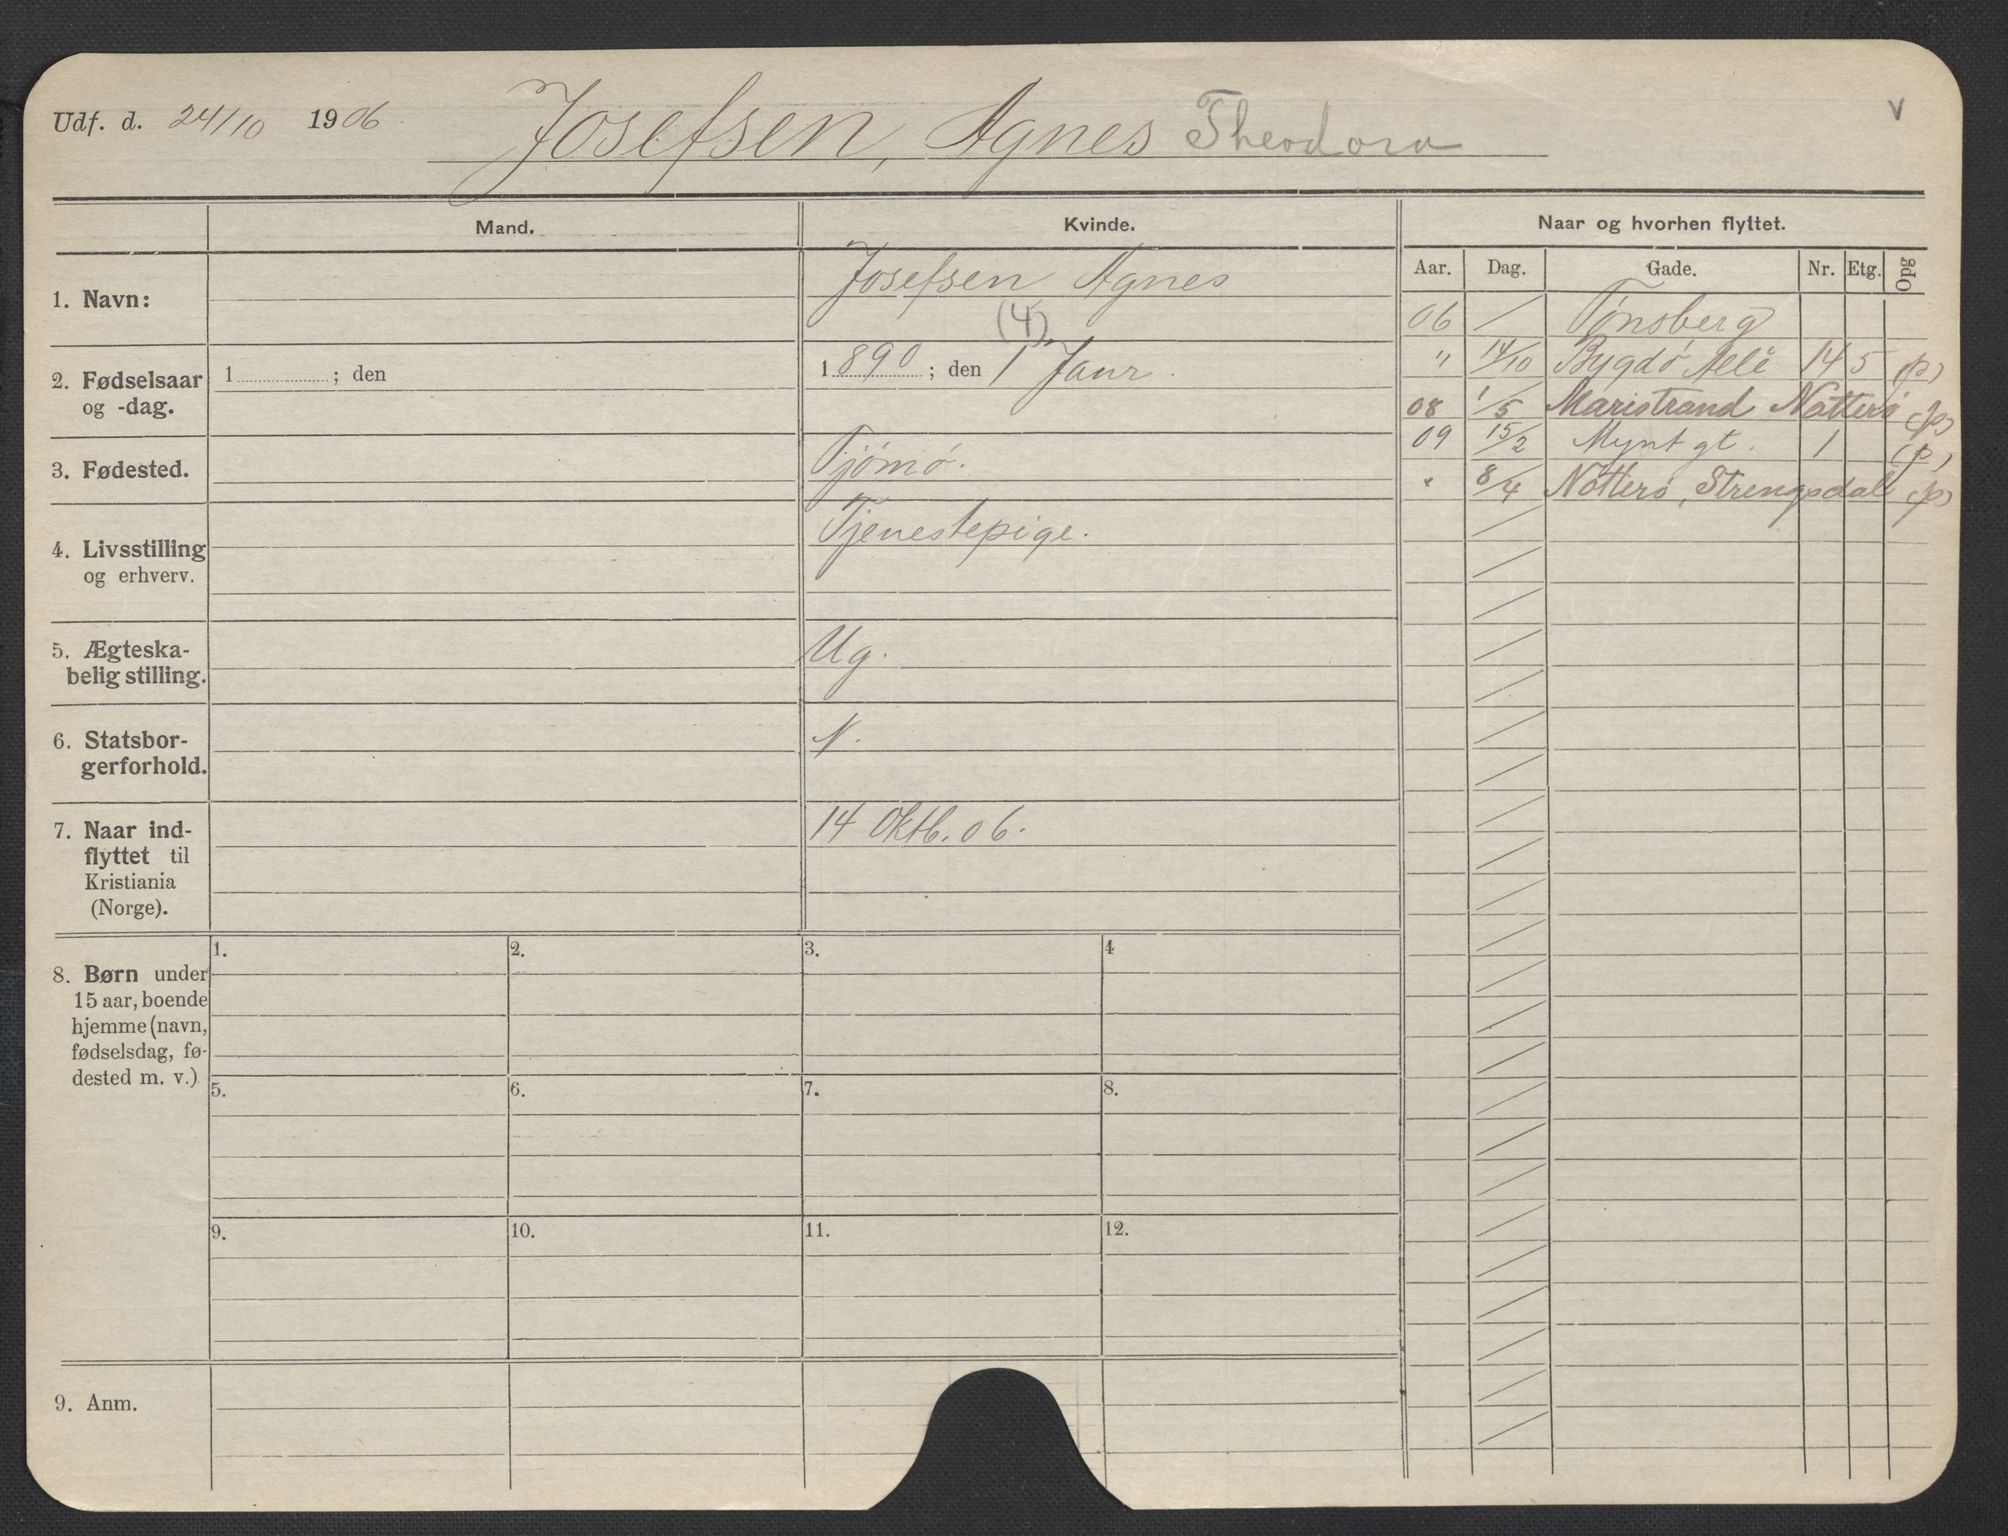 Udf. d. 24/10 1906
Josefsen, Agnes Theodora
v
Mand.
Kvinde.
Naar og hvorhen flyttet.
Aar. Dag. Gade. Nr. Etg. Opg
1. Navn:
Josefsen Agnes
2. Fødselsaar
og -dag.
1 ; den
(4)
1890; den 1 Janr.
3. Fødested.
Tjömö.
4. Livsstilling
og erhverv.
Tjenestepige.
5. Ægteska-
belig stilling.
Ug.
6. Statsbor-
gerforhold.
N.
7. Naar ind-
flyttet til
Kristiania
(Norge).
14 Oktb. 06.
06 / Tønsberg
" 14/10 Bygdö Allé 14 5 (p)
08 1/5 Maristrand Nötterö (p)
09 15/2 Mynt gt. 1 (p)
" 8/4 Nötterö, Strengsdal (p)
8. Børn under
15 aar, boende
hjemme (navn,
fødselsdag, fø-
dested m. v.)
1. 2. 3. 4
5. 6. 7. 8.
9. 10. 11. 12.
9. Anm.